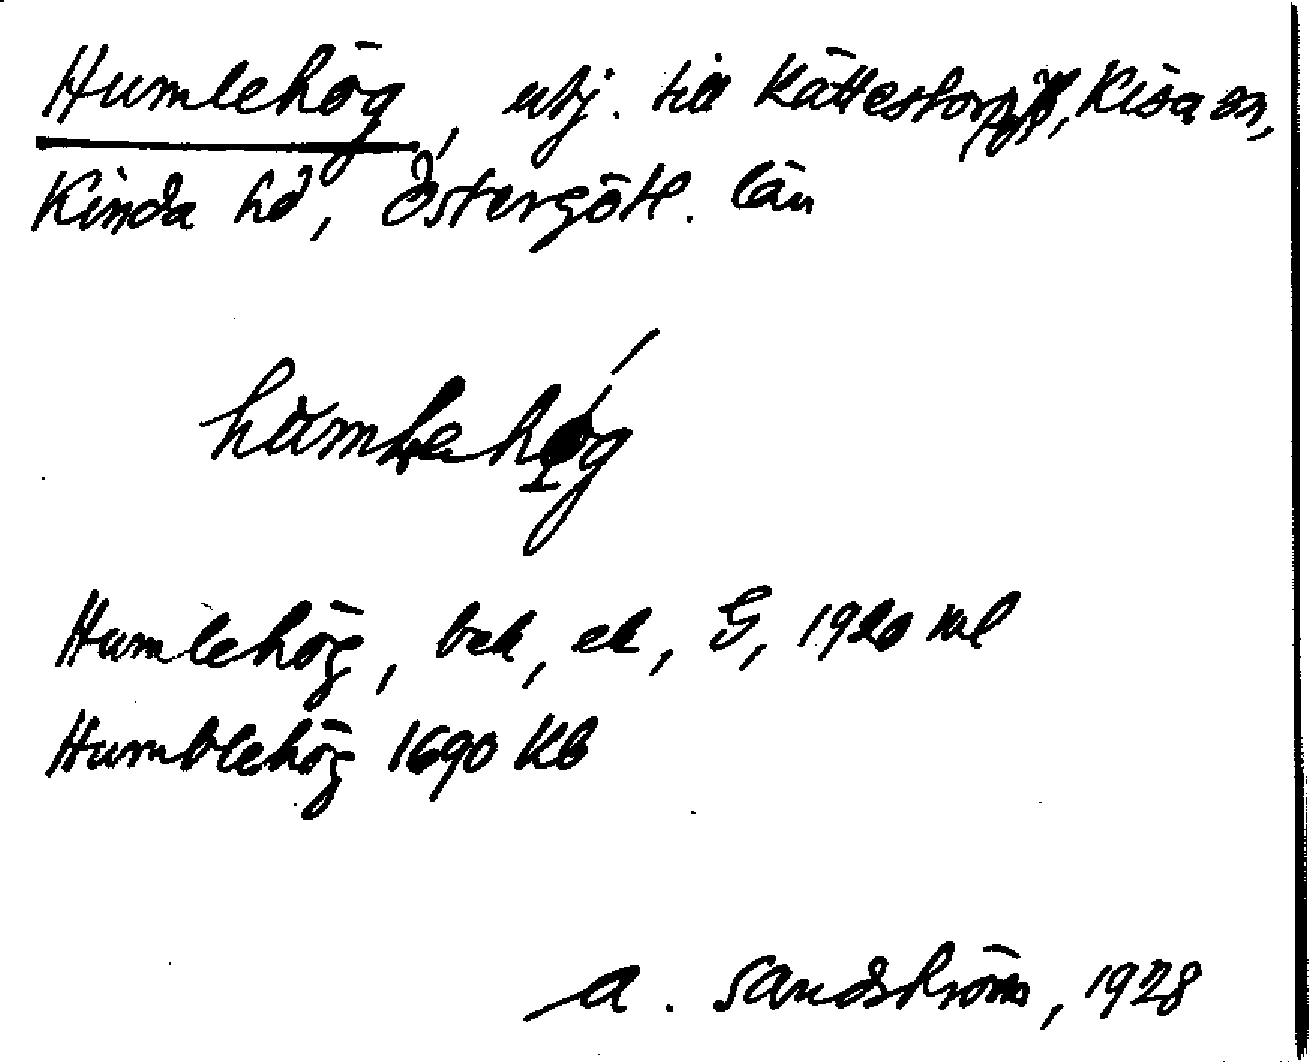 Humlehög, utj. till Kättestorp, Kisa sn,
Kinda hd, Östergötl. län
Humlehög, bek, ek, G, 1920 Ml
Humblehög 1690 Kb
A. Sandström, 1928